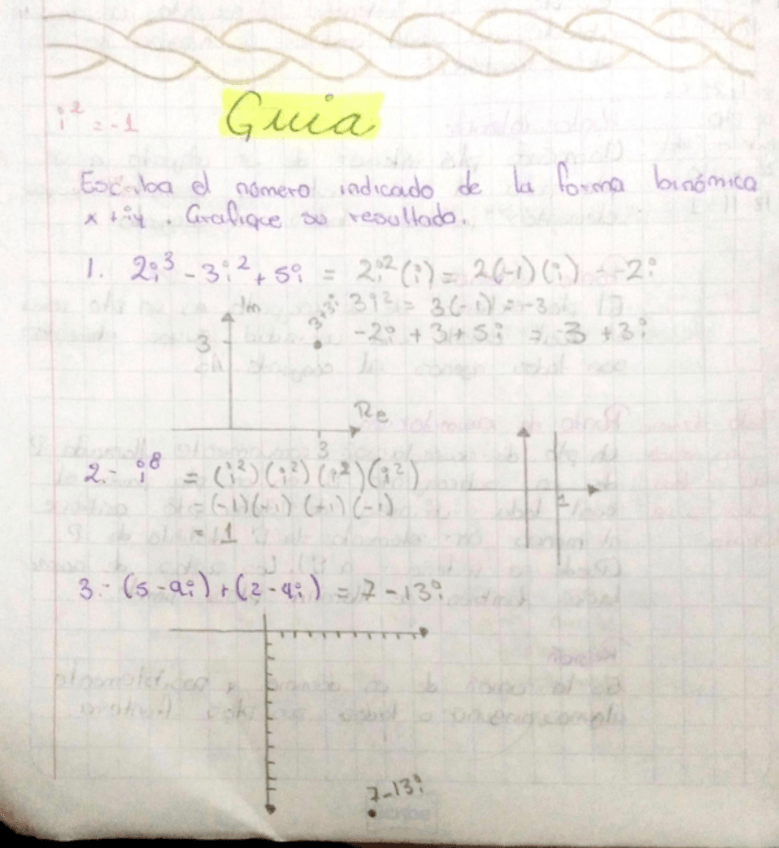 i² = -1
Guia
Escriba el número indicado de la forma binómica
x + iy Grafique su resultado.
1. 2i³ - 3i² + 5i = 2i²(i) = 2(-1)(i) = -2i
3i² = 3(-1) = -3
-2i + 3 + 5i = 3 + 3i
Im
3+3i
3
Re
3
2.- i⁸ = (i²)(i²)(i²)(i²)
= (-1)(-1)(-1)(-1)
= 1
1
3.- (5-9i)+(2-4i) = 7-13i
7-13i